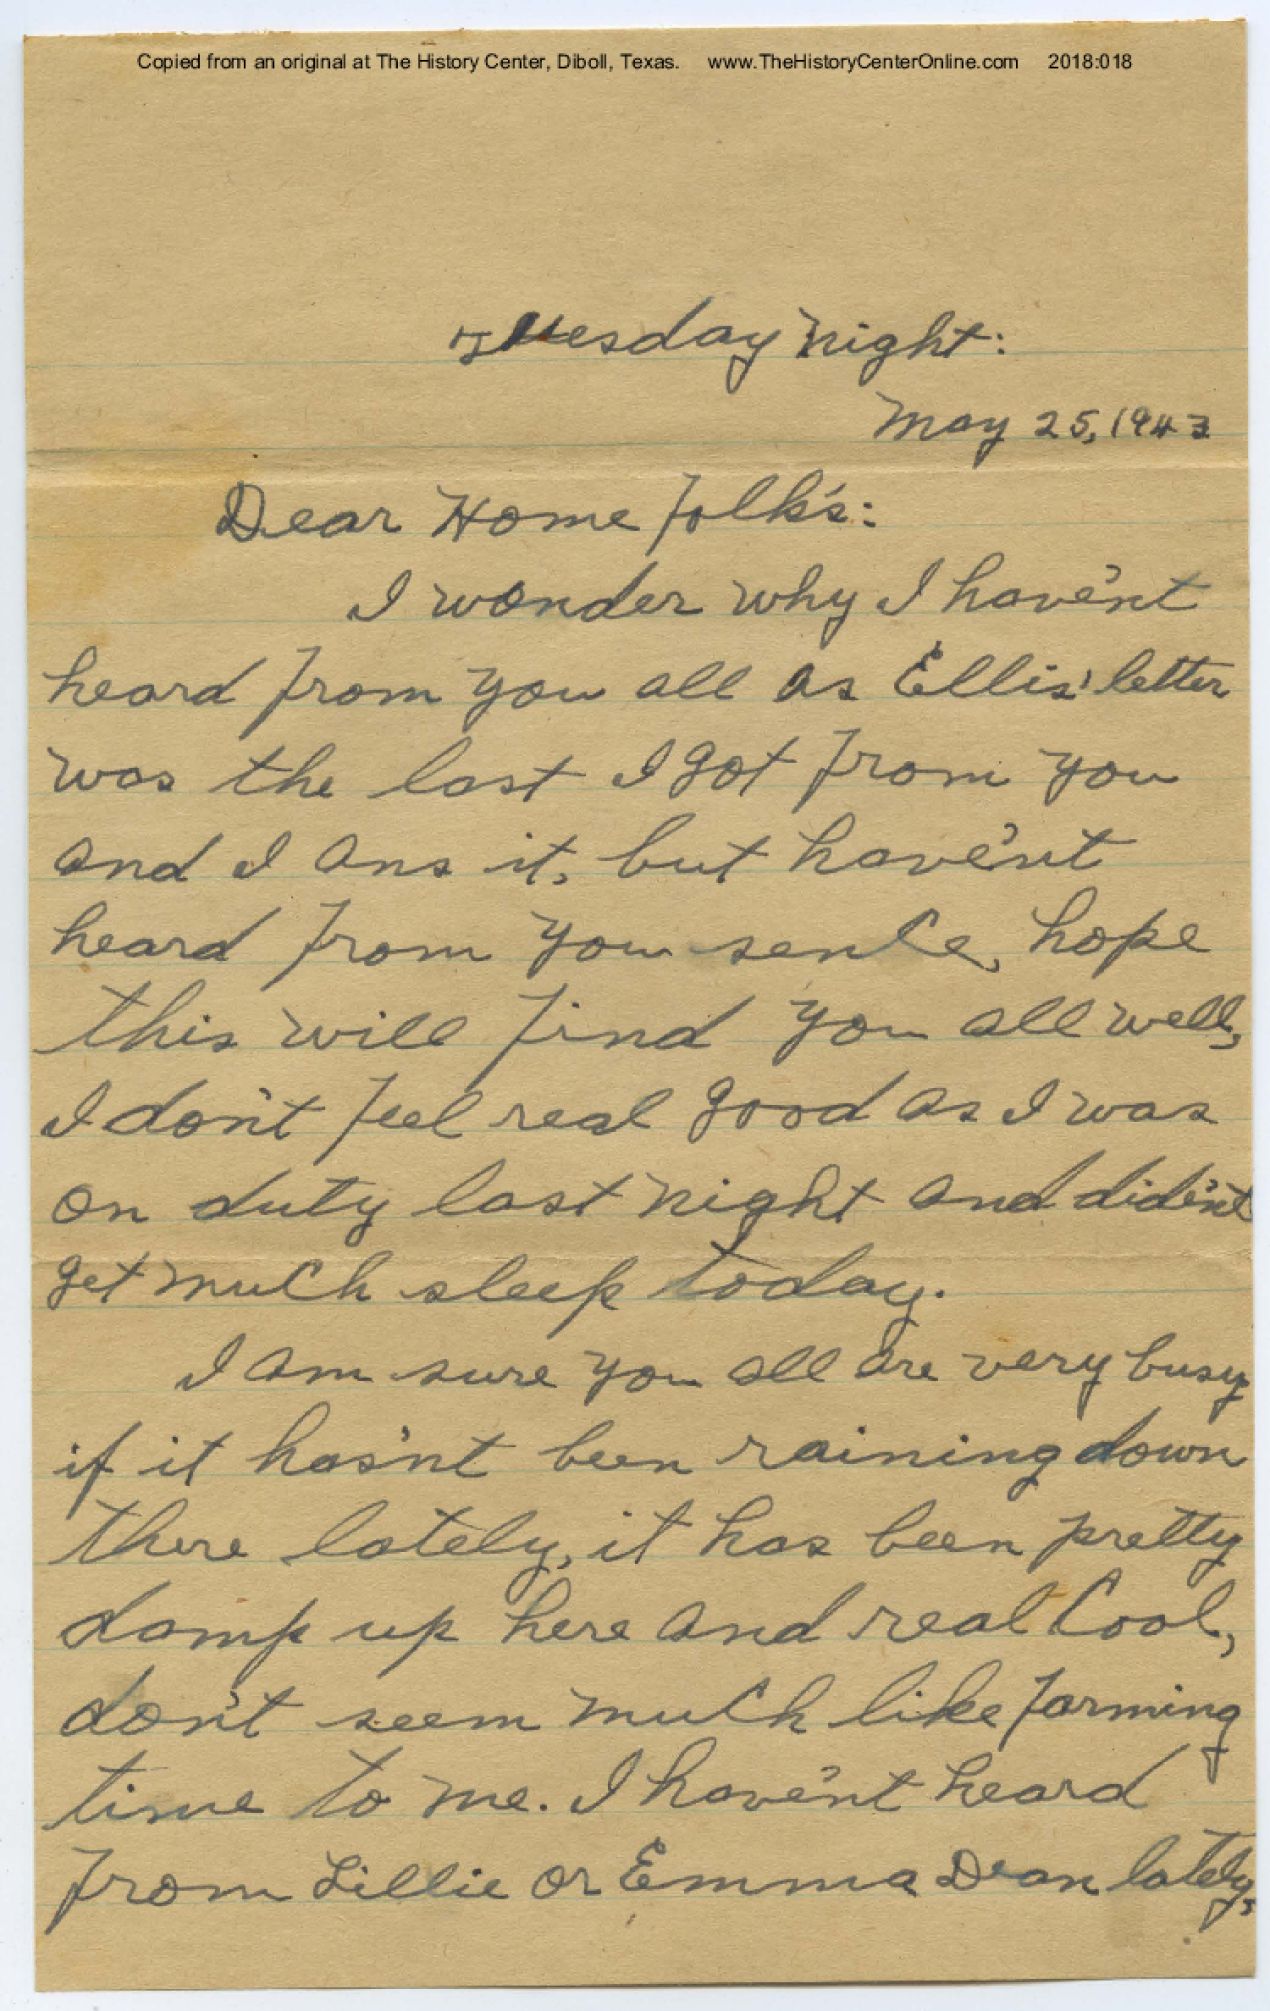 Copied from an original at The History Center, Diboll, Texas. www.TheHistoryCenterOnline.com 2018:018
Tuesday Night:
May 25, 1943
Dear Home folk's:
I wonder why I have'nt
heard from you all as Ellis' letter
was the last I got from you
and I ans it, but have'nt
heard from you sence, hope
this will find you all well,
I don't feel real good as I was
on duty last night and did'nt
get much sleep today.
I am sure you all are very busy
if it has'nt been raining down
there lately, it has been pretty
damp up here and real Cool,
don't seem much like farming
time to me. I have'nt heard
from Lillie or Emma Dean lately,